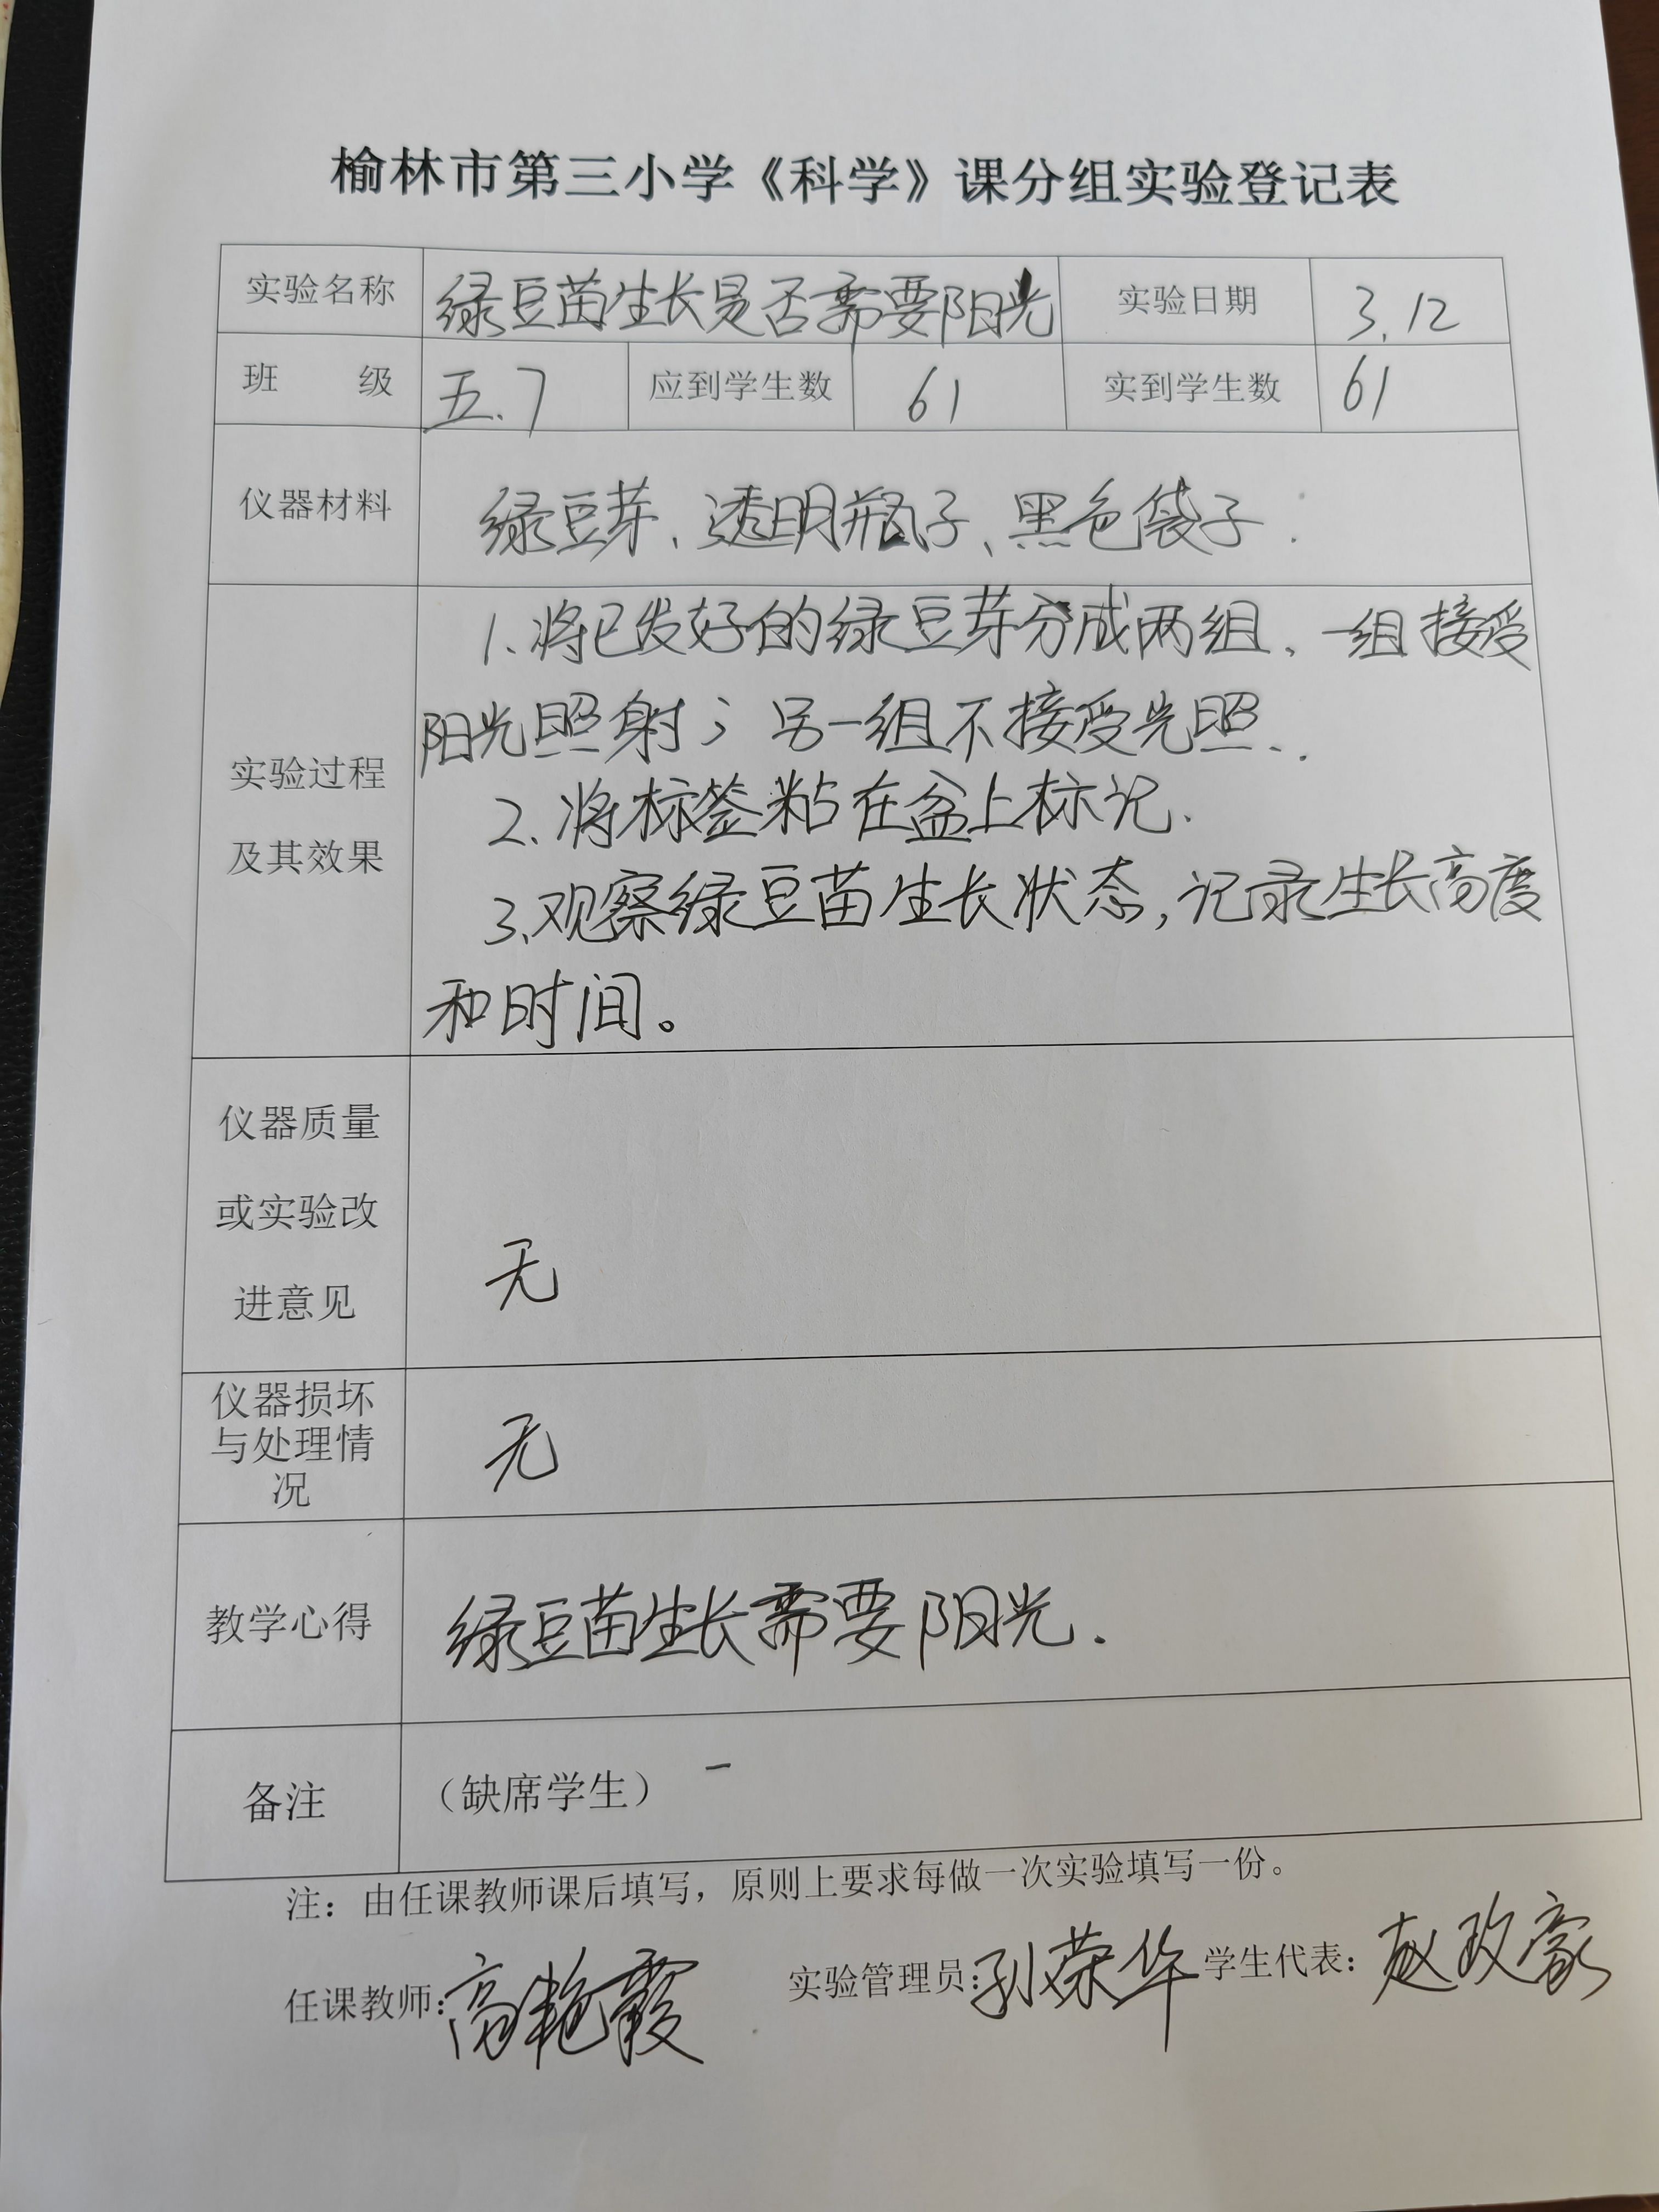 榆林市第三小学《科学》课分组实验登记表
实验名称 绿豆苗生长是否需要阳光 实验日期 3.12
班 级 五.7 应到学生数 61 实到学生数 61
仪器材料 绿豆芽、透明瓶子、黑色袋子.
1.将已发好的绿豆芽分成两组,一组接受
阳光照射;另一组不接受光照.
实验过程
2.将标签粘在盆上标记.
及其效果
3.观察绿豆苗生长状态,记录生长高度
和时间。
仪器质量
或实验改
进意见
无
仪器损坏
与处理情
况
无
教学心得 绿豆苗生长需要阳光.
备注 (缺席学生) -
注:由任课教师课后填写,原则上要求每做一次实验填写一份。
任课教师:高艳霞 实验管理员:孙荣华 学生代表:赵玫豪